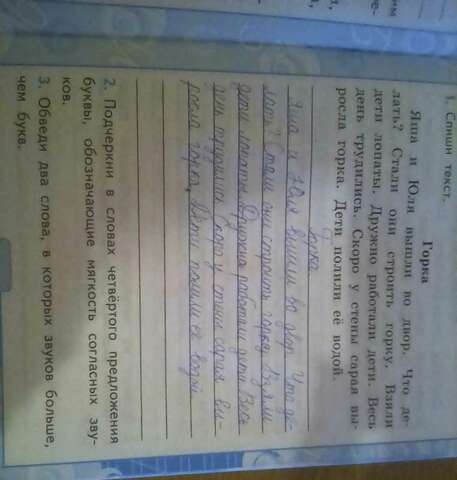 1. Спиши текст.
Горка
Яша и Юля вышли во двор. Что де-
лать? Стали они строить горку. Взяли
дети лопаты. Дружно работали дети. Весь
день трудились. Скоро у стены сарая вы-
росла горка. Дети полили её водой.
Горка
Яша и Юля вышли во двор. Что де-
лать? Стали они строить горку. Взяли
дети лопаты. Дружно работали дети. Весь
день трудились. Скоро у стены сарая вы-
росла горка. Дети полили её водой
2. Подчеркни в словах четвёртого предложения
буквы, обозначающие мягкость согласных зву-
ков.
3. Обведи два слова, в которых звуков больше,
чем букв.